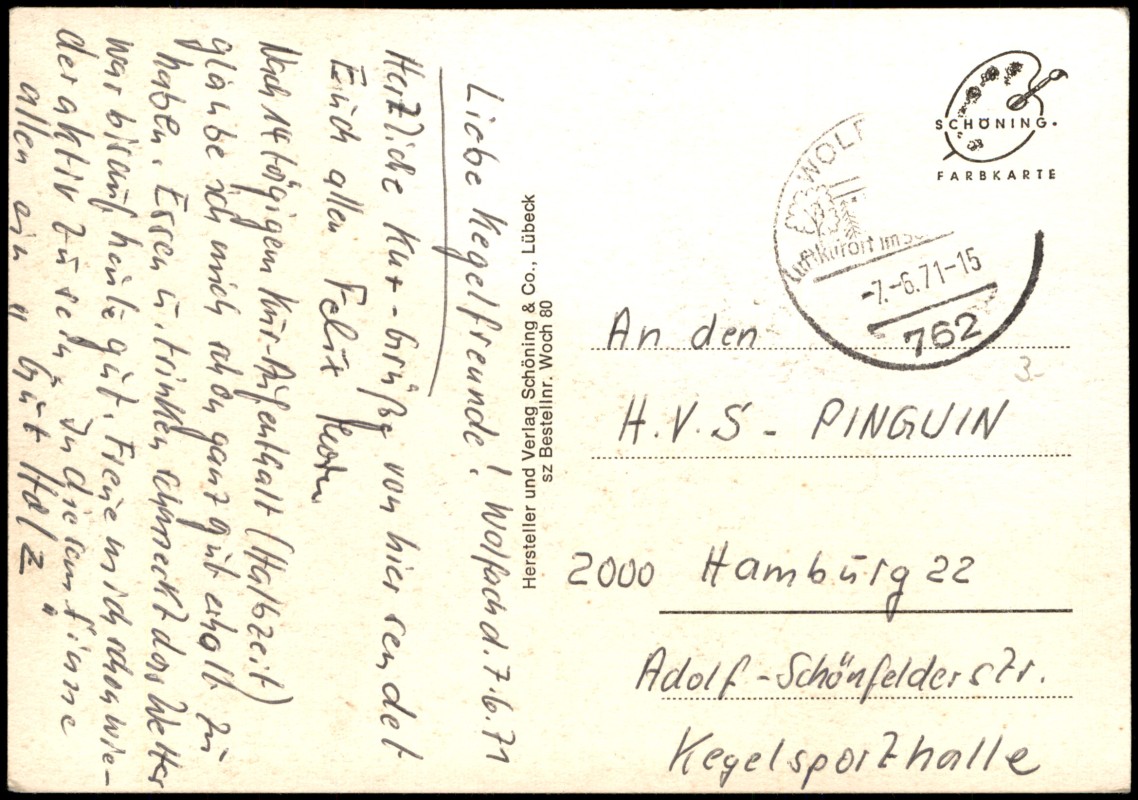 Liebe Kegelfreunde! Wolfach d. 7.6.71
Herzliche Kur-Grüße von hier sendet
Euch allen Felix
Nach 14 tägigem Kur-Aufenthalt (Halbzeit)
glaube ich mich schon ganz gut erholt zu
haben. Essen u. trinken schmeckt das Wetter
war bis auf heute gut. Freue mich schon wie-
der aktiv zu sein. In diesem Sinne
allen ein "Gut Holz"
Hersteller und Verlag Schöning & Co., Lübeck
sz Bestellnr. Woch 80
SCHÖNING
FARBKARTE
WOLF
Luftkurort im
-7.-6.71-15
762
3.-
An den
H.V.S - PINGUIN
2000 Hamburg 22
Adolf-Schönfelderstr.
Kegelsporthalle